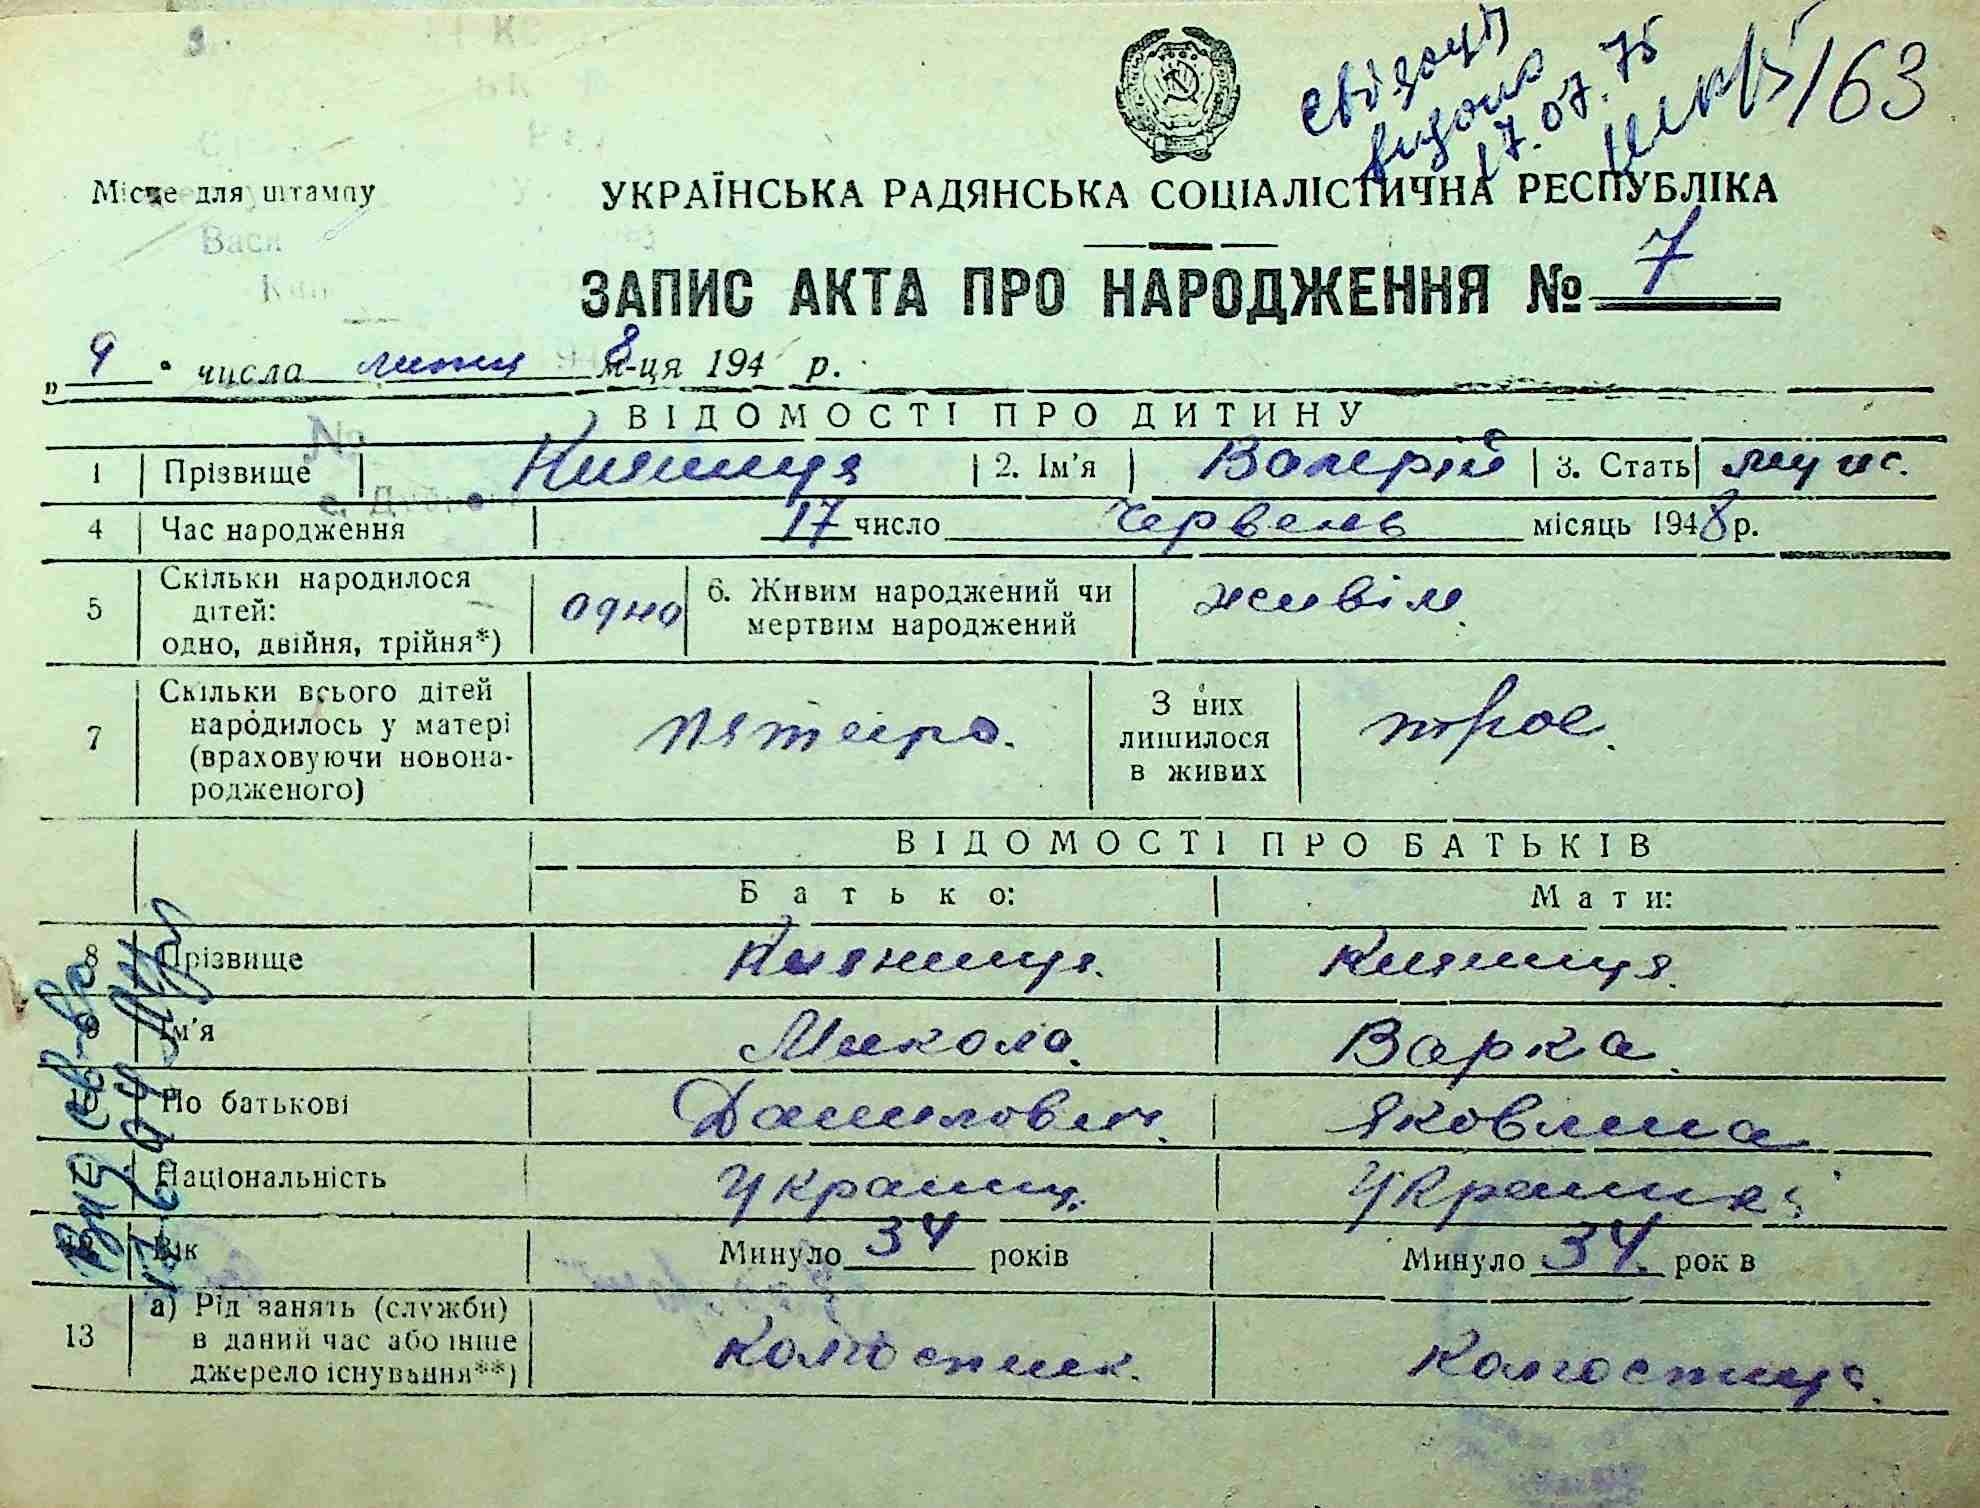 свідоцт
видано
17.07.75
163
Місце для штампу
УКРАЇНСЬКА РАДЯНСЬКА СОЦІАЛІСТИЧНА РЕСПУБЛІКА
ЗАПИС АКТА ПРО НАРОДЖЕННЯ № 7
„ 9 " числа липця м-ця 1948 р.
ВІДОМОСТІ ПРО ДИТИНУ
1 Прізвище Кияниця 2. Ім'я Валерій 3. Стать муж.
4 Час народження 17 число Червень місяць 1948 р.
5 Скільки народилося дітей: одно, двійня, трійня*) одно 6. Живим народжений чи мертвим народжений живім.
7 Скільки всього дітей народилось у матері (враховуючи новонародженого) пятеро. З них лишилося в живих трое.
ВІДОМОСТІ ПРО БАТЬКІВ
Батько: Мати:
8 Прізвище Кияниця. Кияниця.
9 Ім'я Микола. Варка.
10 По батькові Данилович. Яковлина
11 Національність Украинц. Украинка
12 Вік Минуло 34 років Минуло 34. рок в
13 а) Рід занять (служби) в даний час або інше джерело існування**) колгоспник. колгоспниця.